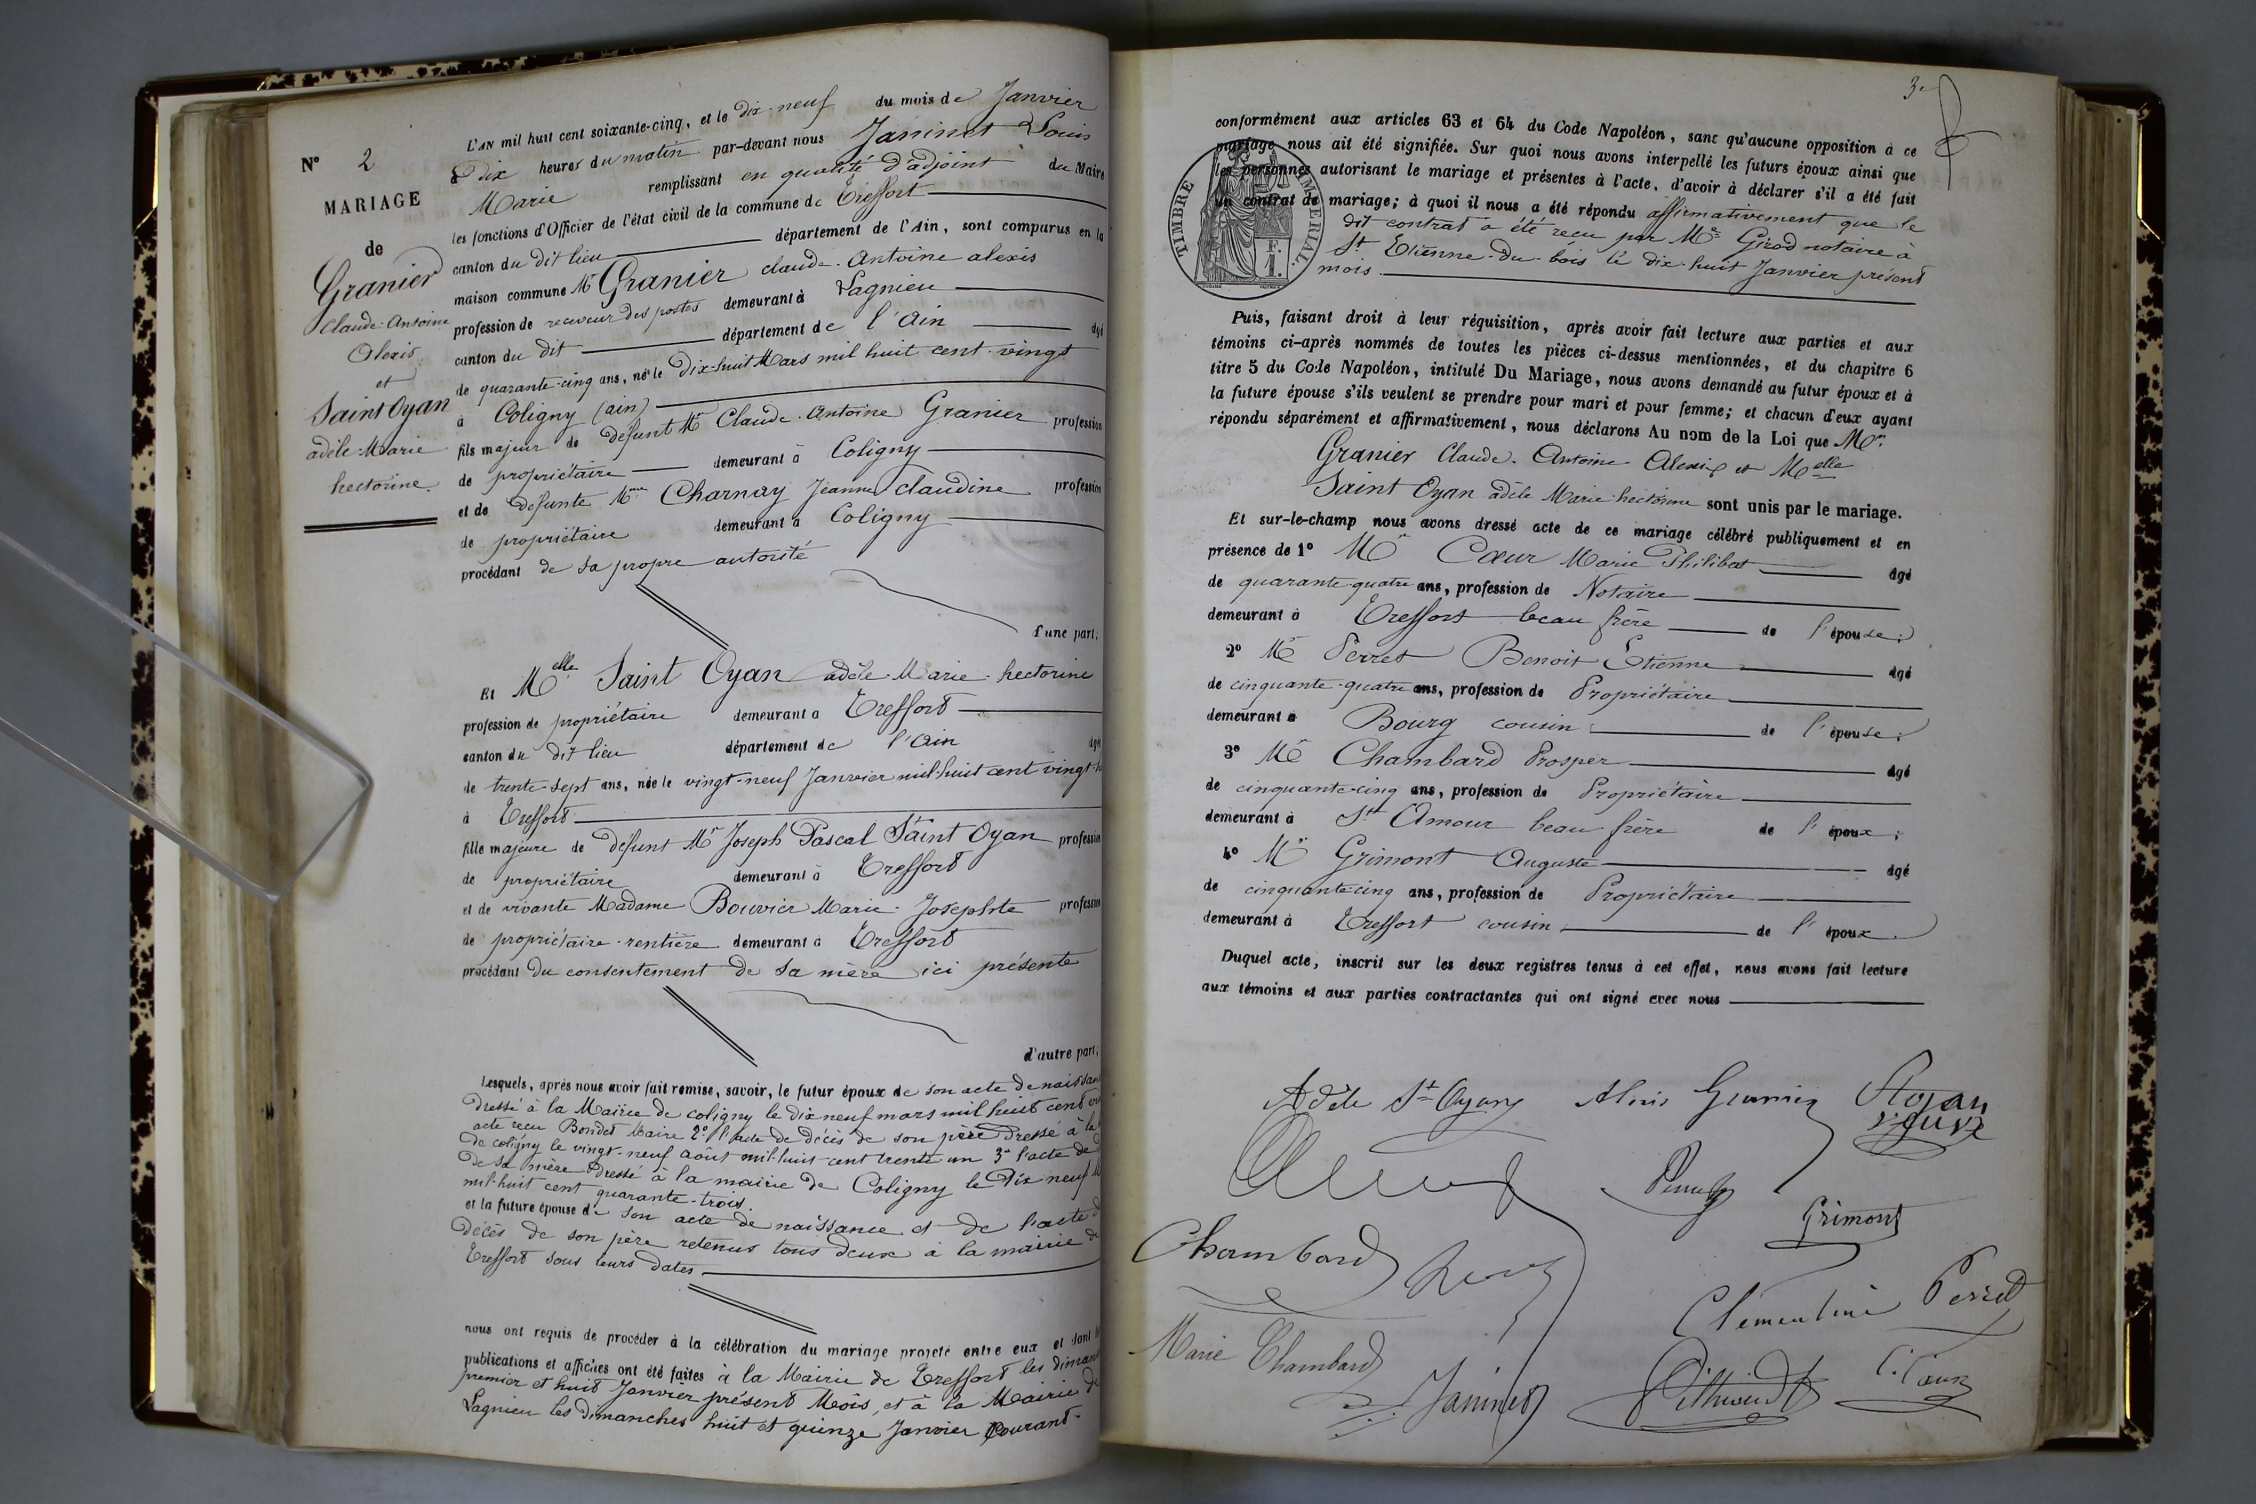 N° 2
MARIAGE
de
Granier
Claude-Antoine
Alexis
et
Saint Oyan
adèle-Marie
hectorine.
L'AN mil huit cent soixante-cinq, et le dix-neuf du mois de Janvier
à dix heures du matin par-devant nous Janinet Louis
Marie remplissant en qualité d'adjoint du Maire
les fonctions d'Officier de l'état civil de la commune de Treffort
canton du dit lieu département de l'Ain, sont comparus en la
maison commune Mr Granier claude-Antoine alexis
profession de receveur des postes demeurant à Lagnieu
canton du dit département de l'Ain âgé
de quarante-cinq ans, né le Dix-huit Mars mil huit cent-vingt
à Coligny (ain)
fils majeur de défunt Mr Claude-Antoine Granier profession
de propriétaire demeurant à Coligny
et de défunte Mme Charnay Jeanne Claudine profession
de propriétaire demeurant à Coligny
procédant de sa propre autorité
d'une part;
Et Melle Saint Oyan adèle-Marie-hectorine
profession de propriétaire demeurant à Treffort
canton du dit lieu département de l'Ain âgée
de trente-sept ans, née le vingt-neuf Janvier mil-huit cent vingt-
à Treffort
fille majeure de défunt Mr Joseph Pascal Saint Oyan profession
de propriétaire demeurant à Treffort
et de vivante Madame Bouvier Marie-Josephte profession
de propriétaire-rentière demeurant à Treffort
procédant du consentement de sa mère ici présente
d'autre part;
Lesquels, après nous avoir fait remise, savoir, le futur époux de son acte de naissan
dressé à la Mairie de coligny le dix neuf mars mil huit cent
acte reçu Bondet Maire 2° l'acte de décès de son père dressé à la
de coligny le vingt-neuf août mil-huit-cent trente un 3° l'acte de
de sa mère dressé à la mairie de Coligny le dix neuf
mil-huit cent quarante-trois.
et la future épouse de son acte de naissance et de l'acte
décès de son père retenus tous deux à la mairie de
Treffort sous leurs dates
nous ont requis de procéder à la célébration du mariage projeté entre eux et dont
publications et affiches ont été faites à la Mairie de Treffort les diman
premier et huit Janvier présent Mois, et à la Mairie de
Lagnieu les dimanches huit et quinze Janvier Courant-
3
conformément aux articles 63 et 64 du Code Napoléon, sans qu'aucune opposition à ce
mariage nous ait été signifiée. Sur quoi nous avons interpellé les futurs époux ainsi que
les personnes autorisant le mariage et présentes à l'acte, d'avoir à déclarer s'il a été fait
un contrat de mariage; à quoi il nous a été répondu affirmativement que le
dit contrat a été reçu par Me Girod notaire à
St Etienne-du-bois le dix-huit Janvier présent
mois
TIMBRE IMPERIAL.
1 F.
Puis, faisant droit à leur réquisition, après avoir fait lecture aux parties et aux
témoins ci-après nommés de toutes les pièces ci-dessus mentionnées, et du chapitre 6
titre 5 du Code Napoléon, intitulé Du Mariage, nous avons demandé au futur époux et à
la future épouse s'ils veulent se prendre pour mari et pour femme; et chacun d'eux ayant
répondu séparément et affirmativement, nous déclarons Au nom de la Loi que Mr
Granier Claude-Antoine Alexis et Melle
Saint Oyan adèle Marie-hectorine sont unis par le mariage.
Et sur-le-champ nous avons dressé acte de ce mariage célébré publiquement et en
présence de 1° Mr Cœur Marie Philibert âgé
de quarante-quatre ans, profession de Notaire
demeurant à Treffort beau frère de l'épouse;
2° Mr Perret Benoit Etienne âgé
de cinquante-quatre ans, profession de Propriétaire
demeurant à Bourg cousin de l'épouse;
3° Mr Chambard Prosper âgé
de cinquante-cinq ans, profession de Propriétaire
demeurant à St Amour beau frère de l'époux;
4° Mr Grimont Auguste âgé
de cinquante-cinq ans, profession de Propriétaire
demeurant à Treffort cousin de l'époux.
Duquel acte, inscrit sur les deux registres tenus à cet effet, nous avons fait lecture
aux témoins et aux parties contractantes qui ont signé avec nous
Adèle St Oyan Alexis Granier St oyan
veuve
Perret
Grimont
Chambard
Clémentine Perret
Marie Chambard
Janinet
C. Cœur